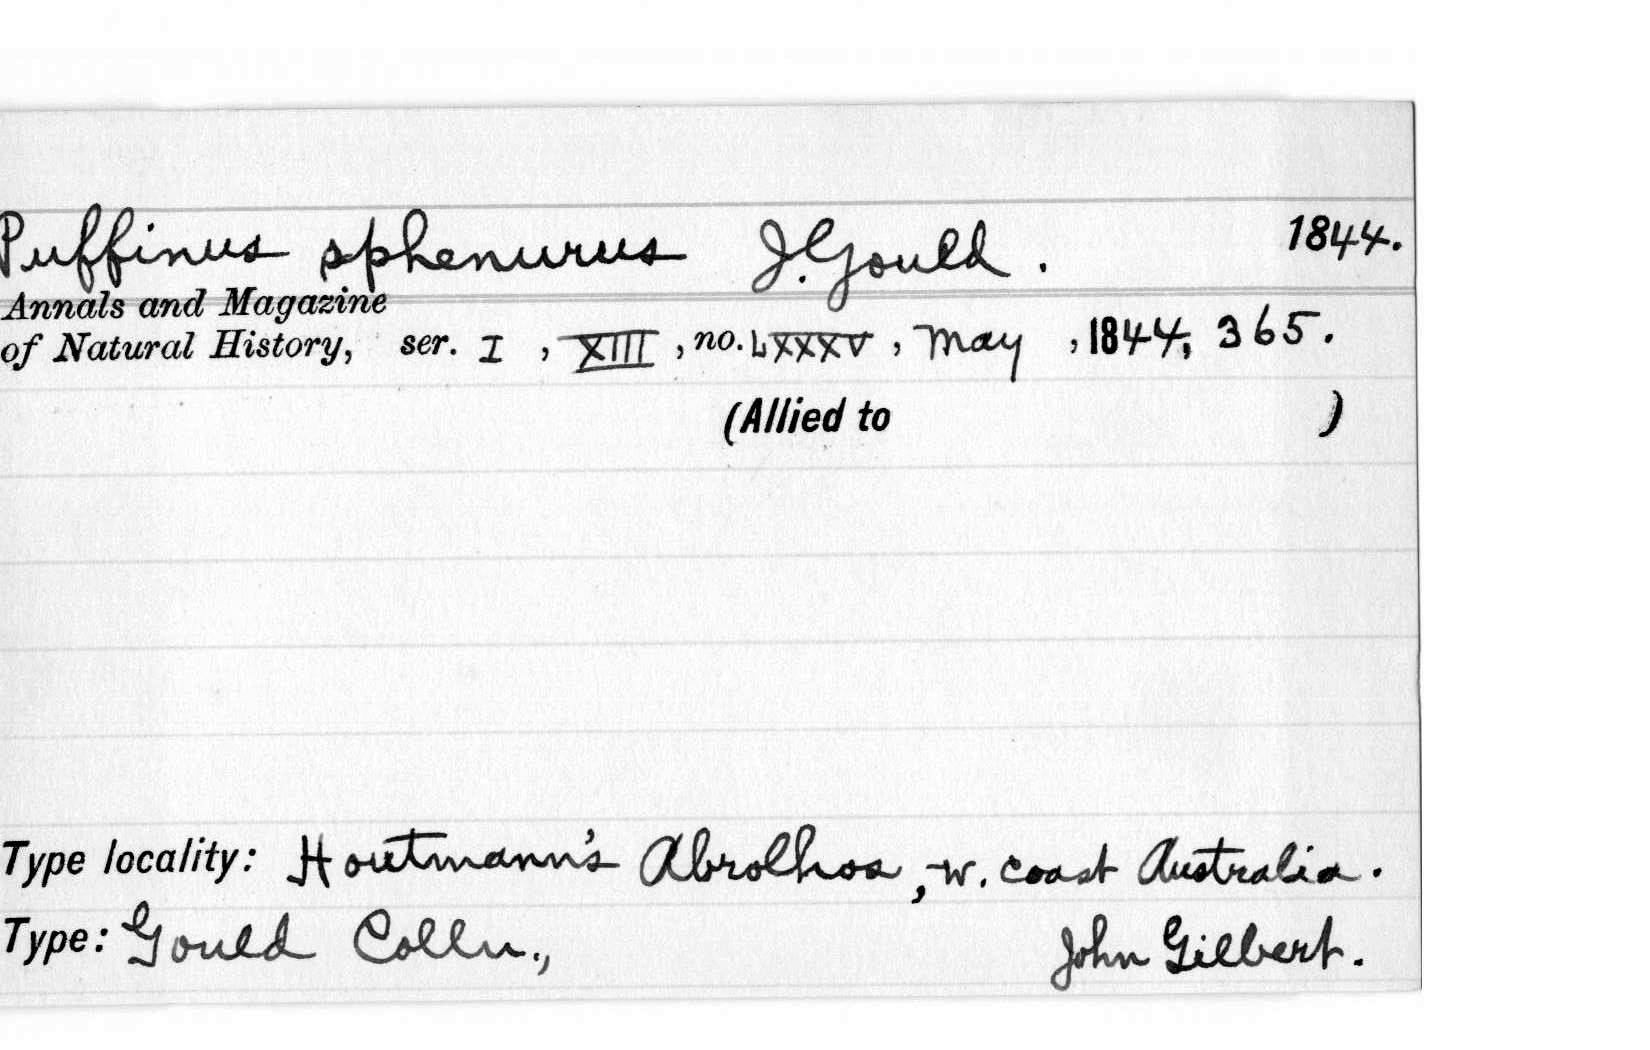 Puffinus sphenurus J. Gould. 1844.
Annals and Magazine
of Natural History, ser. I, XIII, no. LXXXV, May, 1844, 365.
(Allied to )
Type locality: Houtmann's Abrolhos, W. coast Australia.
Type: Gould Colln., John Gilbert.